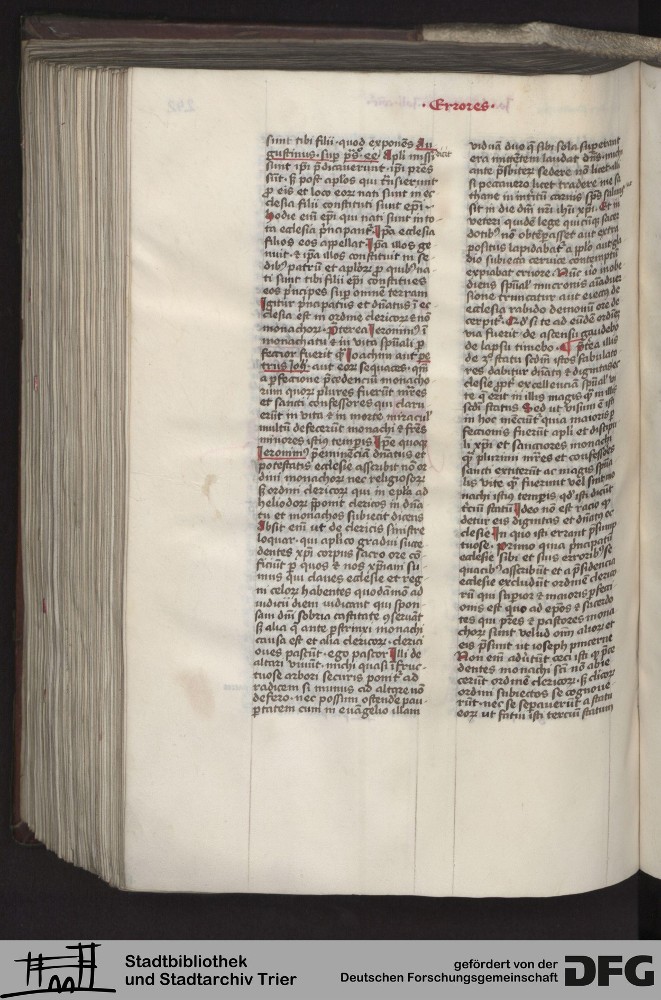 · Errores ·
sunt tibi filii · quod exponens Au
gustinus · sup ps · ee · Apli missi dicit
sunt ipi predicaverunt · ipi pres
sunt · sed post aplos qui
pro eis et loco eor nati sunt in ec
clesia filii constituti sunt epi ·
Hodie eni epi qui nati sunt in to
ta ecclesia Ipa ecclesia
filios eos appellat · Ipa illos ge
nuit · et ipa illos constituit in se
dibus patru et aploru pro quibus na
ti sunt tibi filii epi constitues
eos principes sup omne terram
Igitur principatus et dnatus i ec
clesia est in ordine clericor et no
monachor · Preterea Ieronimus i
monachatu et in vita spuali p
fectior fuerit quam Ioachim aut pe
trus Ioh · aut eor sequaces · qm
a pfectione precedenciu monacho
rum quor plures fuerut mres
et sancti confessores qui claru
erut in vita et in morte miracul
multu defecerut monachi et fres
minores istius temporis Ipe quoque
Ieronimus preeminencia dnatus et
potestatis ecclesie asscribit no or
dini monachor nec religiosor
sed ordini clericor qui in epla ad
heliodor preponit clericos in dna
tu et monachos subicit dicens
Absit eni ut de clericis sinistre
loquar · qui aplico gradui succe
dentes xpi corpus sacro ore co
ficiut per quos et nos xpiani su
mus qui claves ecclesie et reg
ni celor habentes quodamodo ad
iudicii diem iudicant qui spon
sam dni sobria castitate conservant
sed alia que ante perstrinxi monachi
causa est et alia clericor · clerici
oves pascut · ego pascor Illi de
altari vivut · michi quasi i fruc
tuose arbori securis ponitur ad
radicem si munus ad altare no
defero · nec possum ostende pau
ptatem cum in evangelio illam
viduam duo que sibi sola superant
era mittentem laudat dns · michi
ante presbiter sedere no licet illi
si peccavero licet tradere me sa
thane in interitu carnis spus salvus
sit in die dni nri ihu xpi · Et in
veteri quide lege quicuque sacer
dotibus no obtemperasset aut extra
positus lapidabatur a pplo aut gla
dio subiecta cervice contemptu
expiabat cruore · Nunc vero inobe
diens spuali mucronis
sione truncatur aut eiectus de
ecclesia rabido demonum ore de
cerpitur · Quod si te ad eunde ordine
via fuerit de ascensu gaudebo
de lapsu timebo · Preterea illis
de 3o statu secundum istos fabulato
res dabitur dnatus et dignitas ec
clesie propter excellencia spualis vi
te que erit in illis magis quam in illis
secundi status · Sed ut visum e
in hoc menciut quia maioris p
fectionis fuerut apli et discipu
li xpi et sanctiores monachi
quam plurimi mres et confessores
sancti extiterut ac magis spua
lis vite quam fuerunt vel sint mo
nachi istius temporis · quod isti dicut
tercii status Ideo non est racio quod
detur eis dignitas et dnatus ec
clesie · In quo isti errant presump
tuose · Primo quia principatu
ecclesie sibi et suis erroribus se
quacibus asscribut et a presidencia
ecclesie excludut ordine clerico
ru qui superior et maioris perfecti
onis est quo ad epos et sacerdo
tes qui pres et pastores mona
chor sunt velud omnium alior et
eis presunt ut ioseph pincerne
Non eni advertut ceci isti quod prece
dentes monachi sci no abie
cerut ordine clericor · sed clicor
ordini subiectos se cognove
rut · nec se sepaverut a statu
eor ut fatui isti terciu statum
Stadtbibliothek
und Stadtarchiv Trier
gefördert von der
Deutschen Forschungsgemeinschaft
DFG